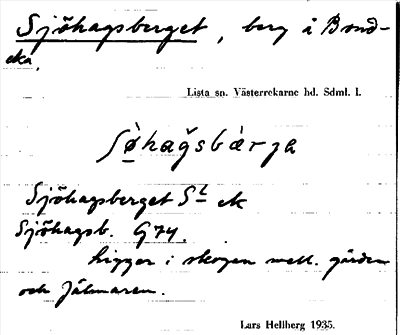 Sjöhagsberget, berg å Bond-
eka.
Lista sn. Västerrekarne hd. Sdml. l.
Sjöhagsberget St ek
Sjöhagsb. G74.
Ligger i skogen mell. gården
och Jälmaren.
Lars Hellberg 1935.